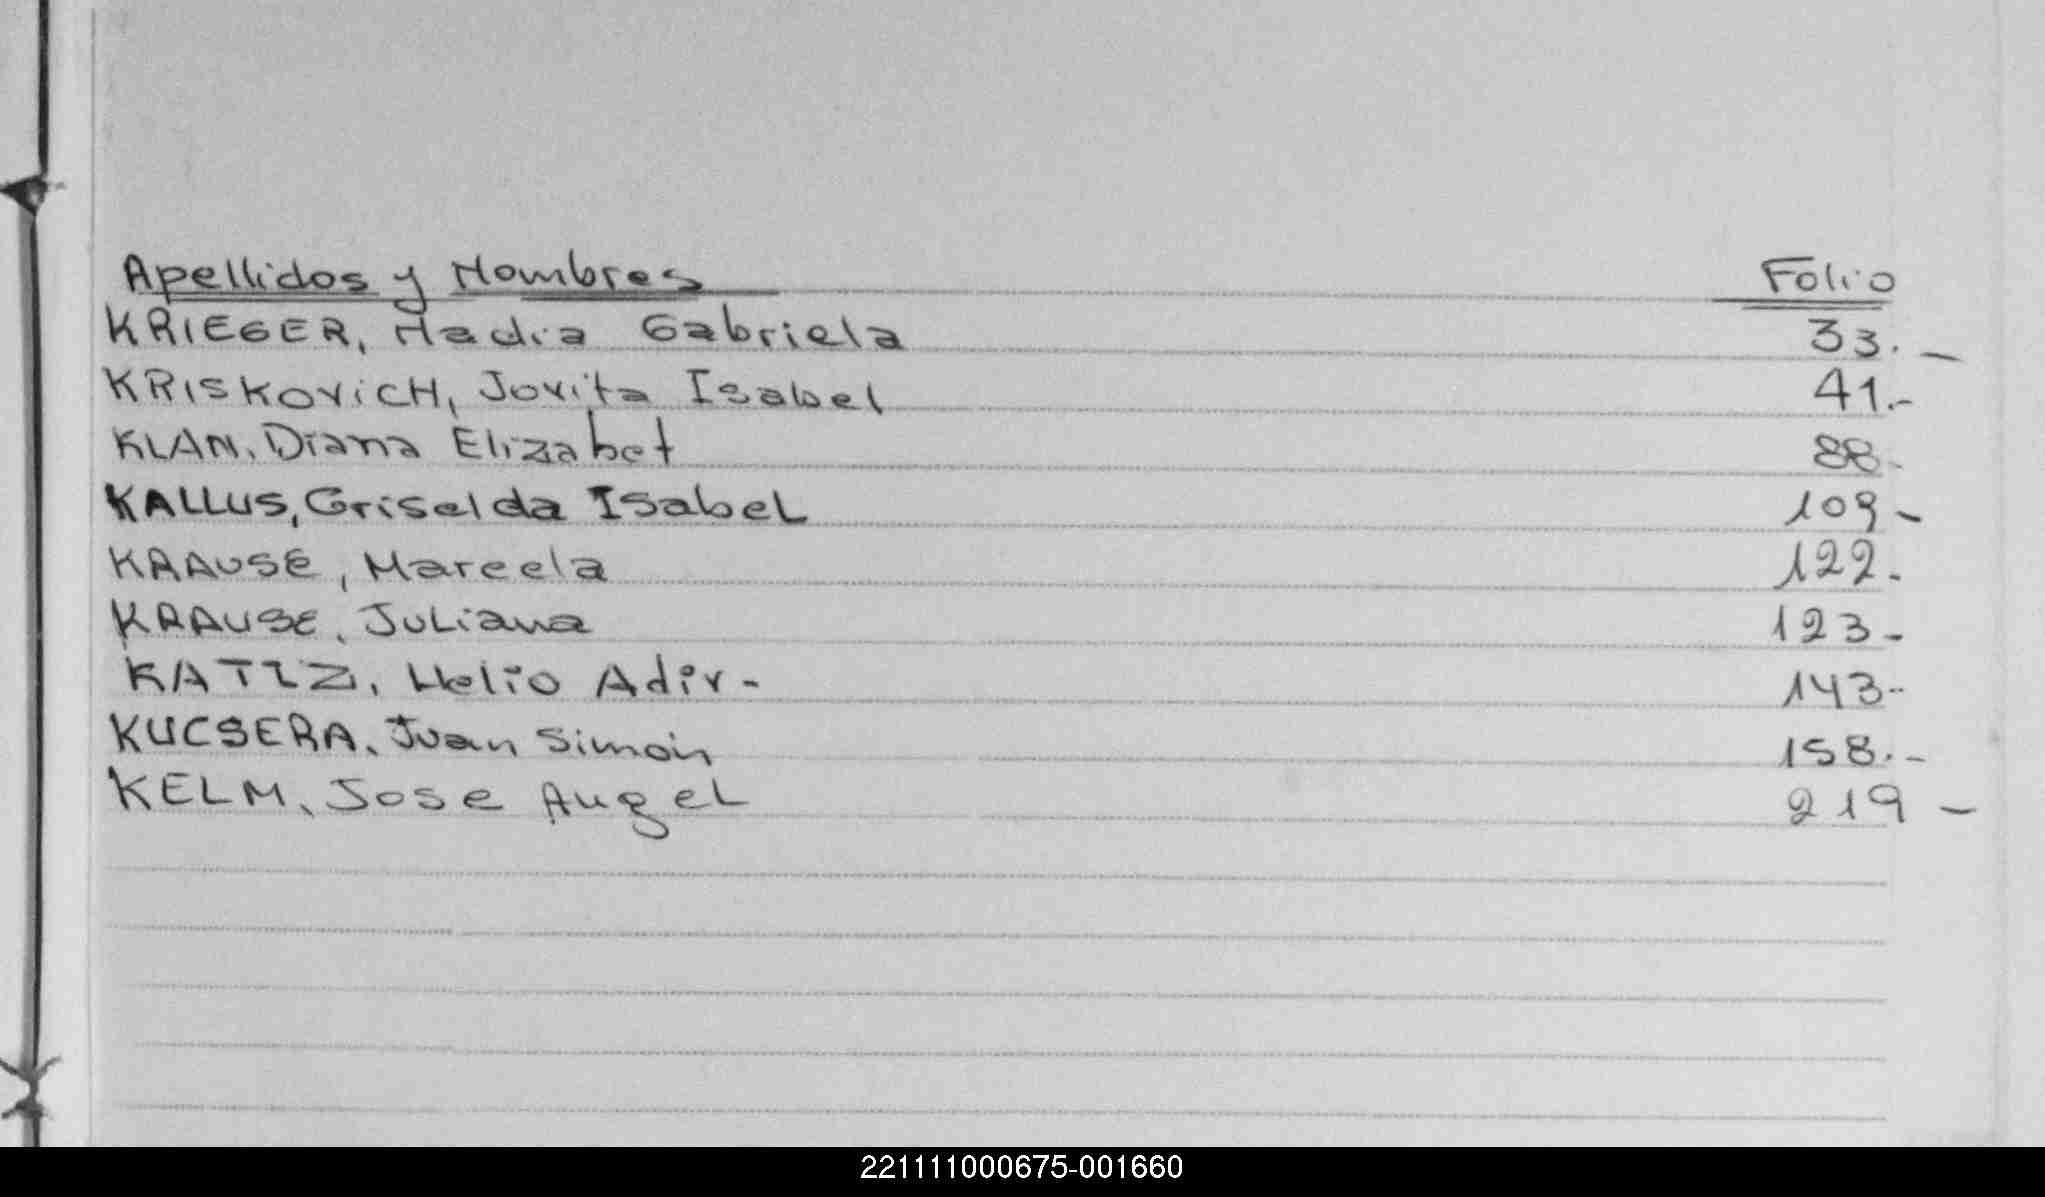 Apellidos y Nombres Folio
KRIEGER, Nadia Gabriela 33.-
KRISKOVICH, Jovita Isabel 41.-
KLAN, Diana Elizabet 88.
KALLUS, Griselda Isabel 109-
KRAUSE, Marcela 122.
KRAUSE, Juliana 123-
KATZZ, Helio Adir- 143.-
KUCSERA, Juan Simón 158.-
KELM, Jose Angel 219-
221111000675-001660